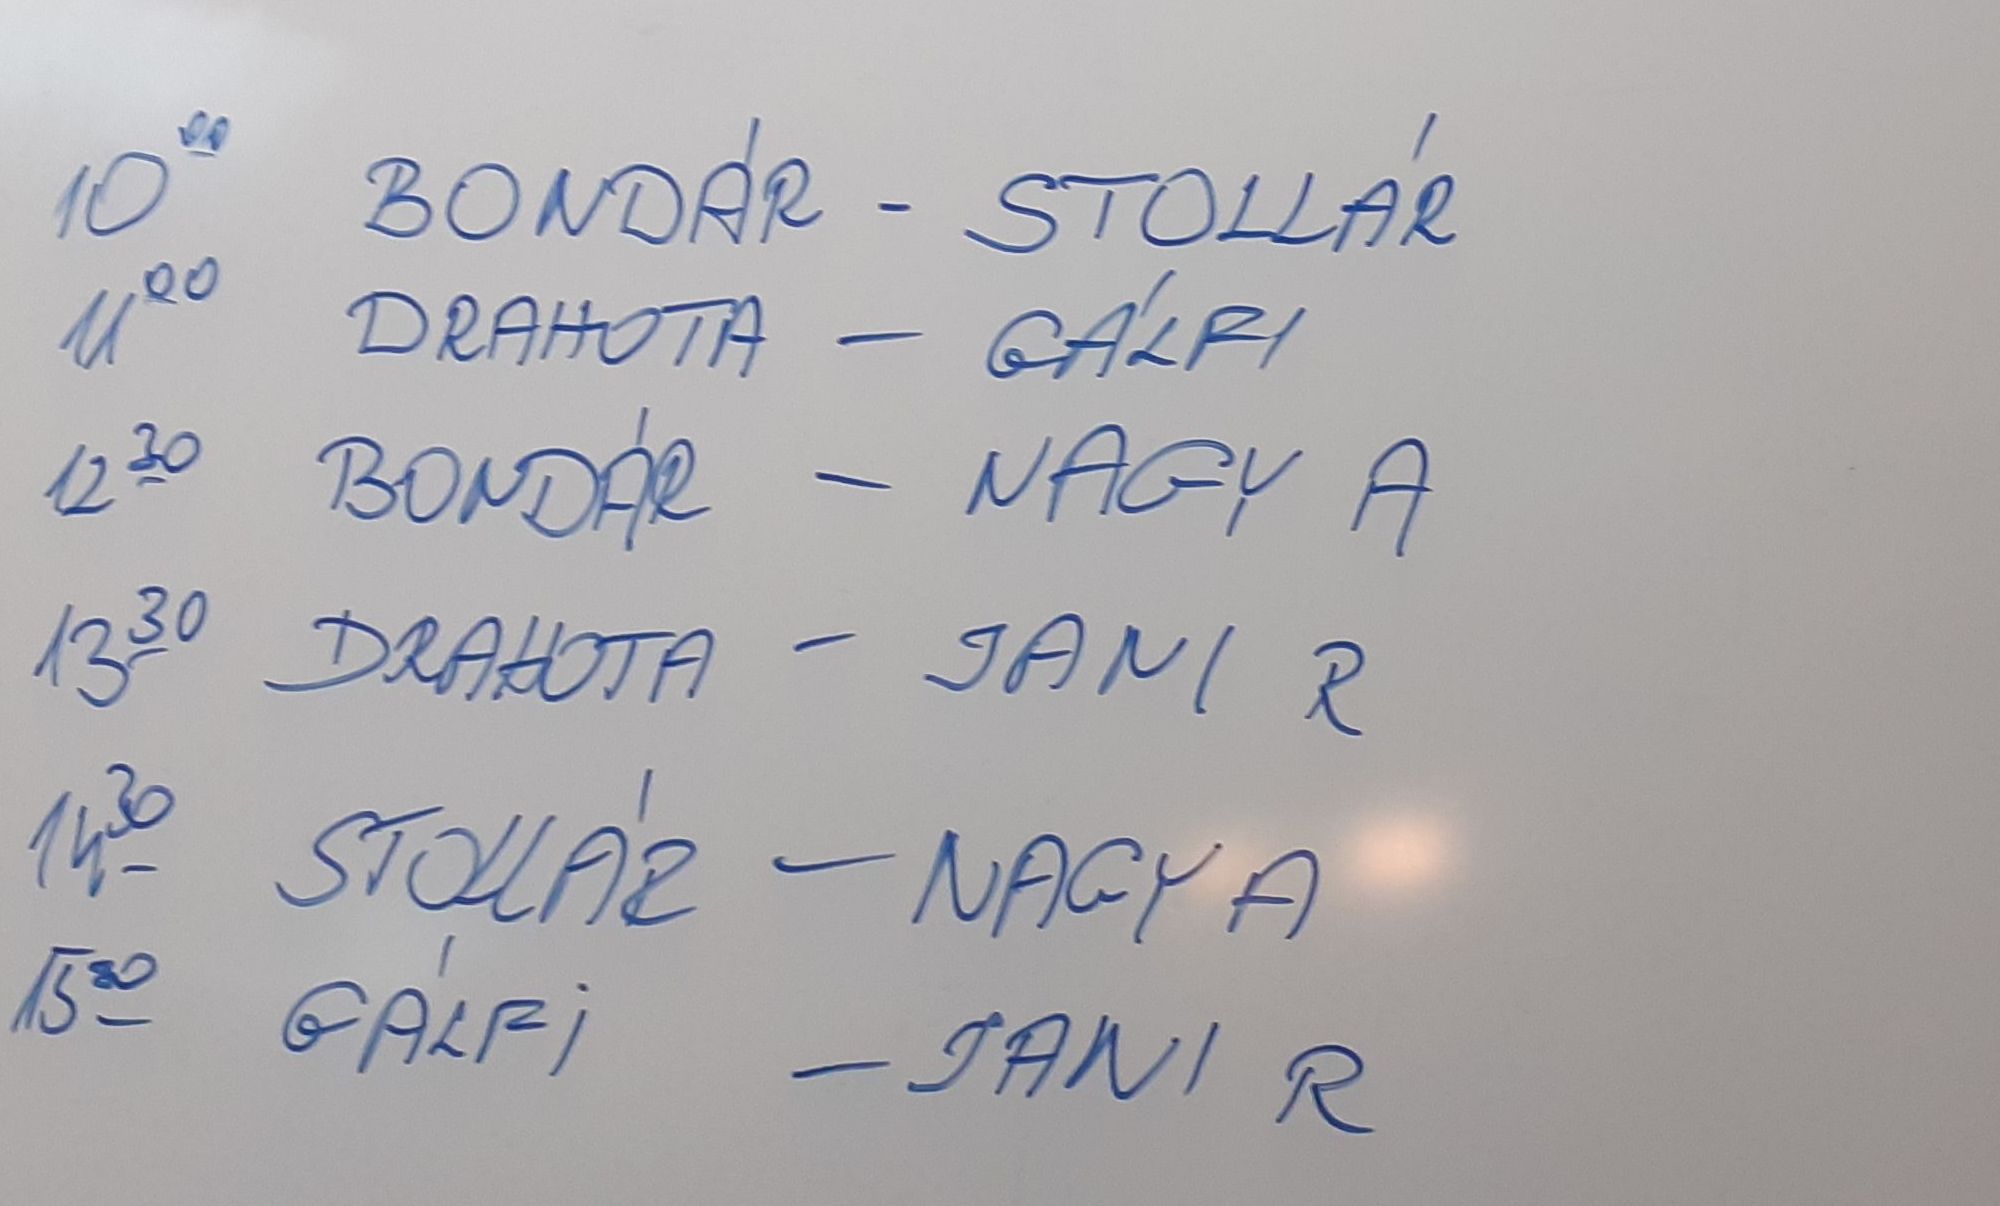 10⁰⁰ BONDÁR - STOLLÁR
11⁰⁰ DRAHOTA - GÁLFI
12³⁰ BONDÁR - NAGY A
13³⁰ DRAHOTA - JANI R
14³⁰ STOLLÁR - NAGY A
15³⁰ GÁLFi - JANI R